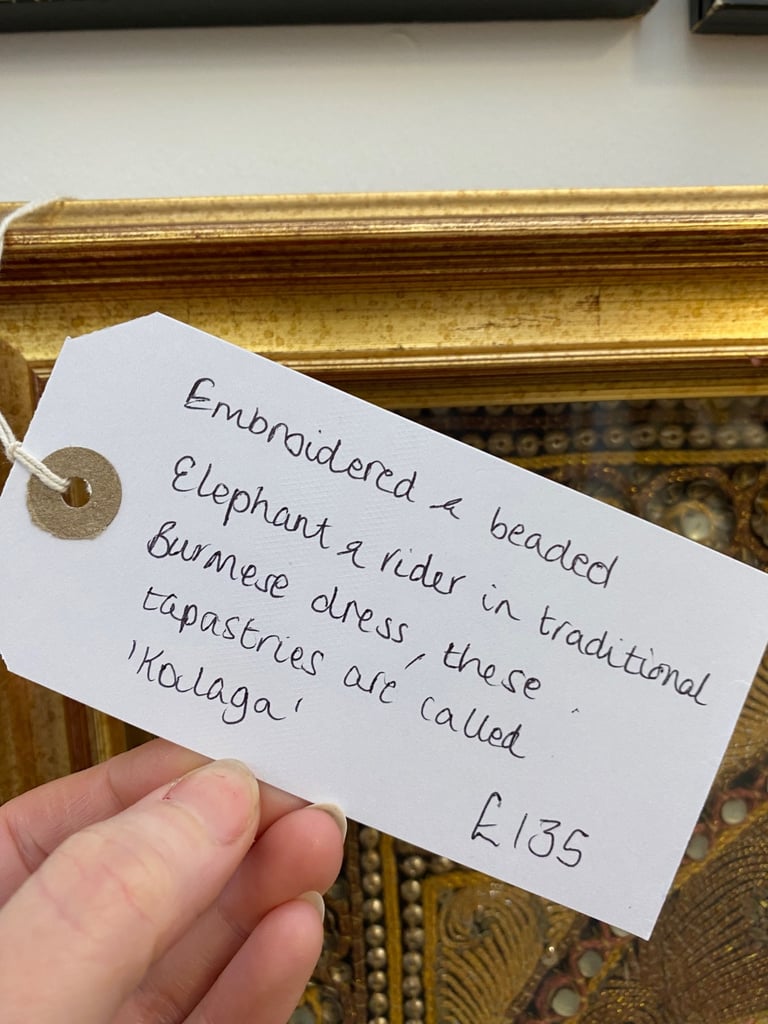 Embroidered & beaded
Elephant & rider in traditional
Burmese dress, these
tapastries are called
'Kalaga'
£135